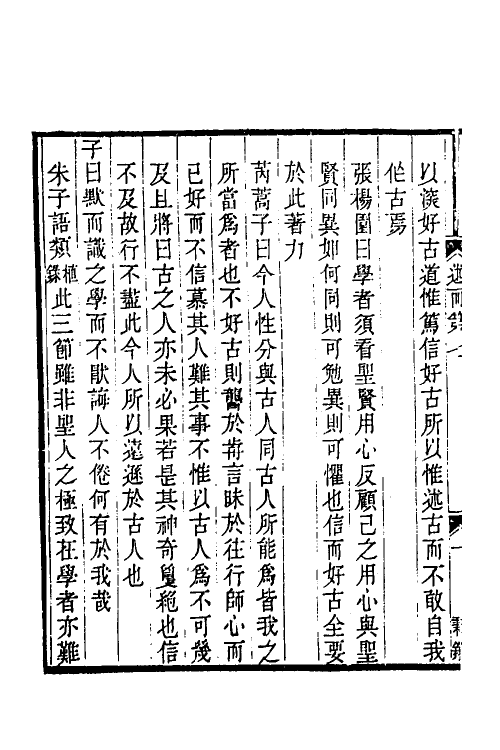 以深好古道惟篤信好古所以惟述古而不敢自我
作古焉
張楊園曰學者須看聖賢用心反顧己之用心與聖
賢同異如何同則可勉異則可懼也信而好古全要
於此著力
芮蒿子曰今人性分與古人同古人所能爲皆我之
所當爲者也不好古則聾於前言昧於往行師心而
已好而不信慕其人難其事不惟以古人爲不可幾
及且將曰古之人亦未必果若是其神奇敻絶也信
不及故行不盡此今人所以遠遜於古人也
子曰默而識之學而不厭誨人不倦何有於我哉
朱子語類植錄此三節雖非聖人之極致在學者亦難